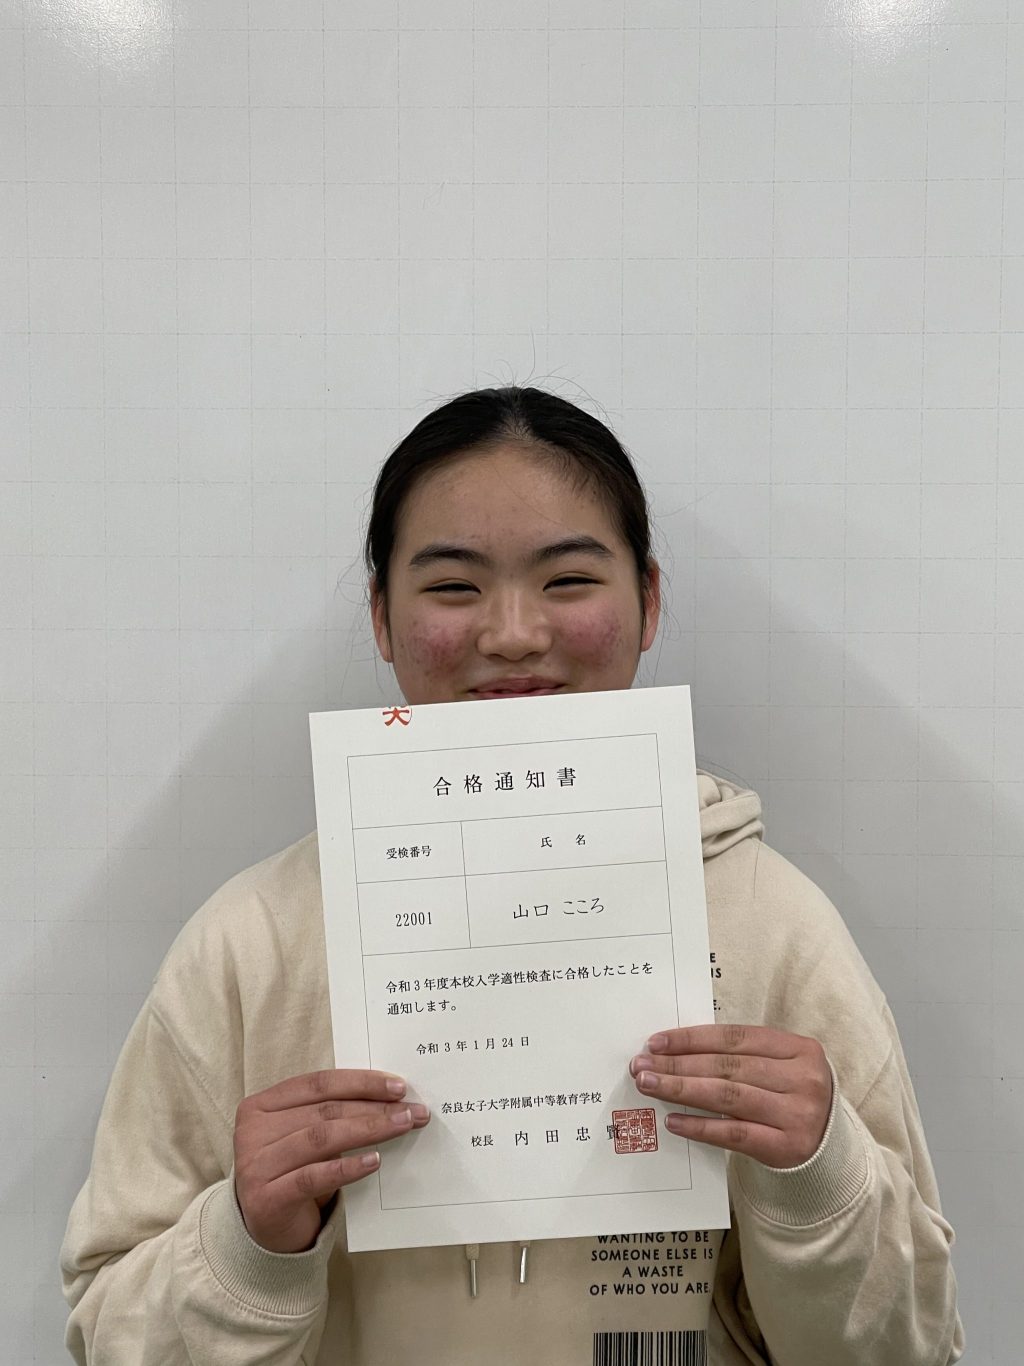 合格通知書
受検番号 氏名
22001 山口 こころ
令和3年度本校入学適性検査に合格したことを
通知します。
令和 3 年 1 月 24 日
奈良女子大学附属中等教育学校
校長 内田忠賢
WANTING TO BE
SOMEONE ELSE IS
A WASTE
OF WHO YOU ARE.